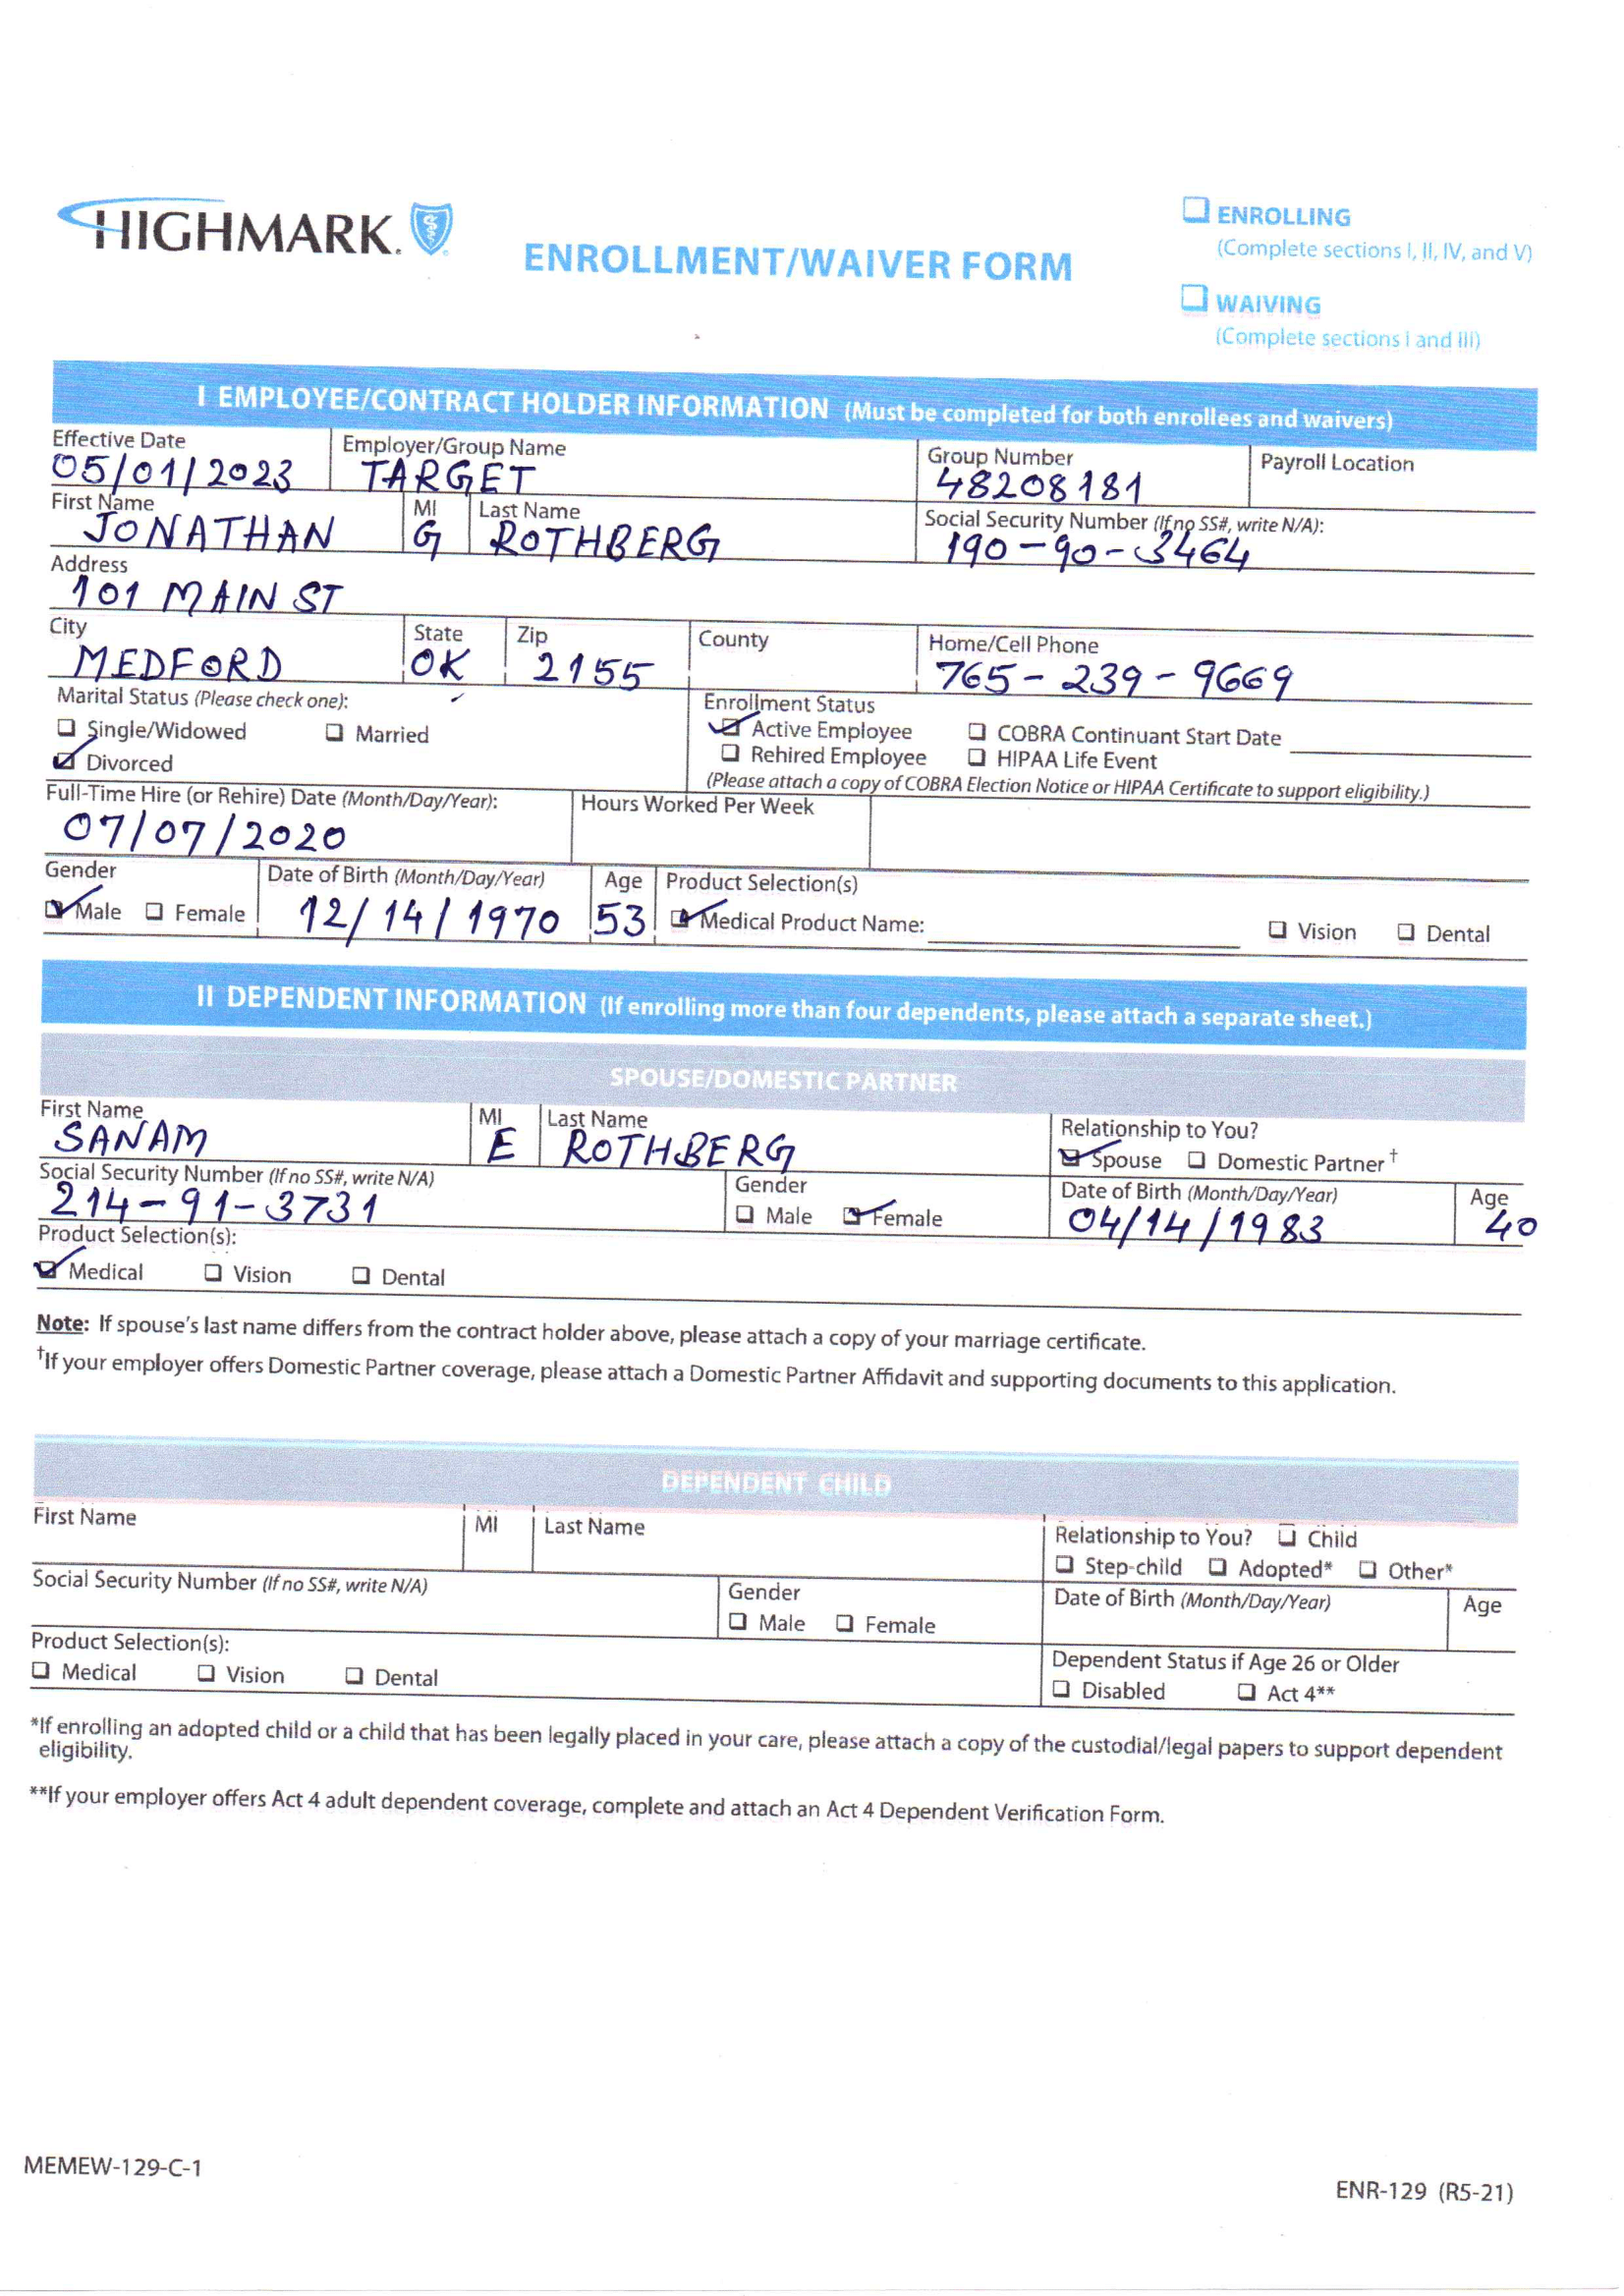 HIGHMARK.
ENROLLMENT/WAIVER FORM
☐ ENROLLING
(Complete sections I, II, IV, and V)
☐ WAIVING
(Complete sections I and III)
I EMPLOYEE/CONTRACT HOLDER INFORMATION (Must be completed for both enrollees and waivers)
Effective Date Employer/Group Name Group Number Payroll Location
05/01/2023 TARGET 48208181
First Name MI Last Name Social Security Number (If no SS#, write N/A):
JONATHAN G ROTHBERG 190-90-3464
Address
101 MAIN ST
City State Zip County Home/Cell Phone
MEDFORD OK 2155 765-239-9669
Marital Status (Please check one): Enrollment Status
☐ Single/Widowed ☐ Married ☑ Active Employee ☐ COBRA Continuant Start Date
☑ Divorced ☐ Rehired Employee ☐ HIPAA Life Event
(Please attach a copy of COBRA Election Notice or HIPAA Certificate to support eligibility.)
Full-Time Hire (or Rehire) Date (Month/Day/Year): Hours Worked Per Week
07/07/2020
Gender Date of Birth (Month/Day/Year) Age Product Selection(s)
☑ Male ☐ Female 12/14/1970 53 ☑ Medical Product Name: ☐ Vision ☐ Dental
II DEPENDENT INFORMATION (If enrolling more than four dependents, please attach a separate sheet.)
SPOUSE/DOMESTIC PARTNER
First Name MI Last Name Relationship to You?
SANAM E ROTHBERG ☑ Spouse ☐ Domestic Partner†
Social Security Number (If no SS#, write N/A) Gender Date of Birth (Month/Day/Year) Age
214-91-3731 ☐ Male ☑ Female 04/14/1983 40
Product Selection(s):
☑ Medical ☐ Vision ☐ Dental
Note: If spouse's last name differs from the contract holder above, please attach a copy of your marriage certificate.
†If your employer offers Domestic Partner coverage, please attach a Domestic Partner Affidavit and supporting documents to this application.
DEPENDENT CHILD
First Name MI Last Name Relationship to You? ☐ Child
☐ Step-child ☐ Adopted* ☐ Other*
Social Security Number (If no SS#, write N/A) Gender Date of Birth (Month/Day/Year) Age
☐ Male ☐ Female
Product Selection(s): Dependent Status if Age 26 or Older
☐ Medical ☐ Vision ☐ Dental ☐ Disabled ☐ Act 4**
*If enrolling an adopted child or a child that has been legally placed in your care, please attach a copy of the custodial/legal papers to support dependent
eligibility.
**If your employer offers Act 4 adult dependent coverage, complete and attach an Act 4 Dependent Verification Form.
MEMEW-129-C-1
ENR-129 (R5-21)